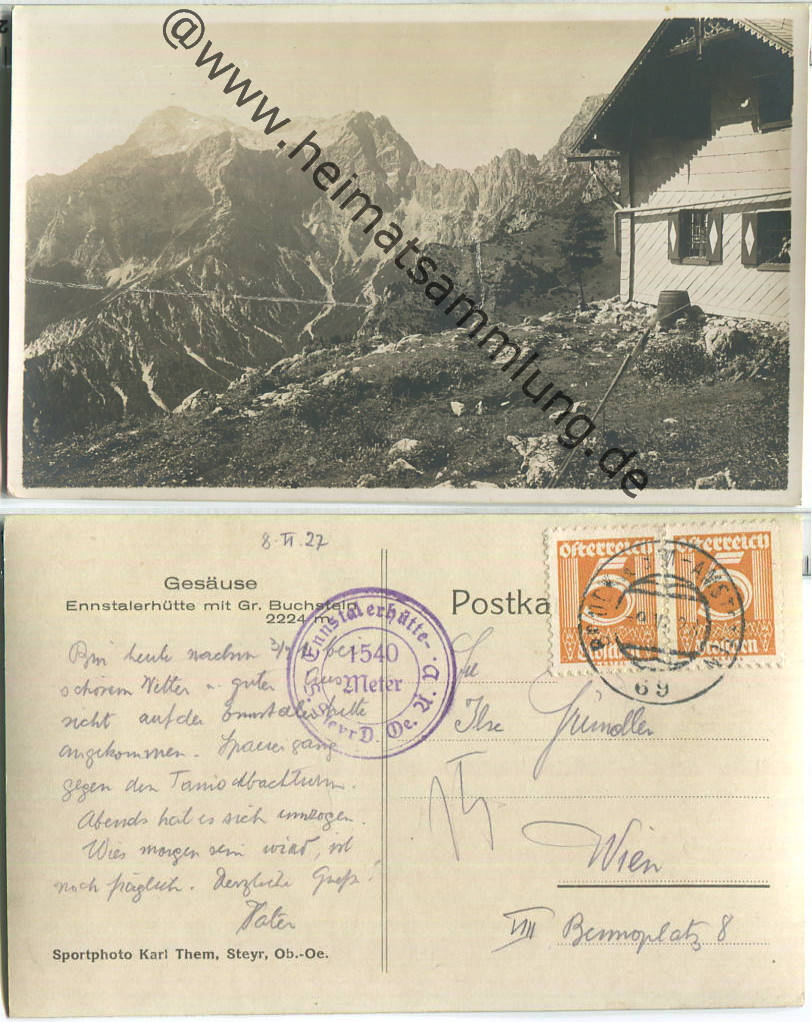 @www.heimatsammlung.de
8.VI.27
Gesäuse
Ennstalerhütte mit Gr. Buchstein
2224 m
Postka
Österreich Österreich
15 15
Groschen Groschen
69
Ennstalerhütte
1540
Meter
Steyr D. Oe. A. V.
Bin heute nachm. bei
schönem Wetter u. guter Aus
sicht auf der Ennstalerhütte
angekommen. Spaziergang
gegen den Tamischbachturm.
Abends hat es sich umzogen.
Wies morgen sein wird, ist
noch fraglich. Herzliche Grüße!
Vater
Ilse Gründler
Wien
VIII Bennoplatz 8
Sportphoto Karl Them, Steyr, Ob.-Oe.